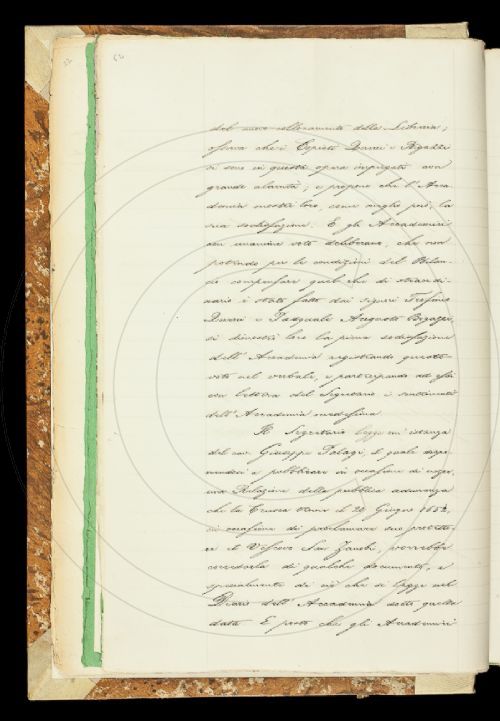 del nuovo collocamento della Libreria;
osserva che i Copisti Durazzi e Bigazzi
si sono in questa opera impiegati con
grande alacrità; e propone che l'Acca-
demia mostri loro, come meglio può, la
sua sodisfazione. E gli Accademici
con unanime voto deliberano, che non
potendo per le condizioni del Bilan-
cio compensare quel che di straordi-
nario è stato fatto dai signori
e Pasquale Augusto Bigazzi,
si dimostri loro la piena sodisfazione
dell'Accademia registrando questo
voto nel verbale, e partecipando ad essi
con lettera del Segretario i sentimenti
dell'Accademia medesima.
Il Segretario legge un'istanza
del cav. Giuseppe Palagi, il quale
a pubblicare in occasione di nozze
una Relazione della pubblica adunanza
che la Crusca tenne il 20 Giugno 1652,
in occasione di proclamare suo protetto-
re il Vescovo San Zanobi, vorrebbe
corredarla di qualche documento, e
specialmente di ciò che si legge nel
Diario dell'Accademia sotto quella
data. E posto che gli Accademici